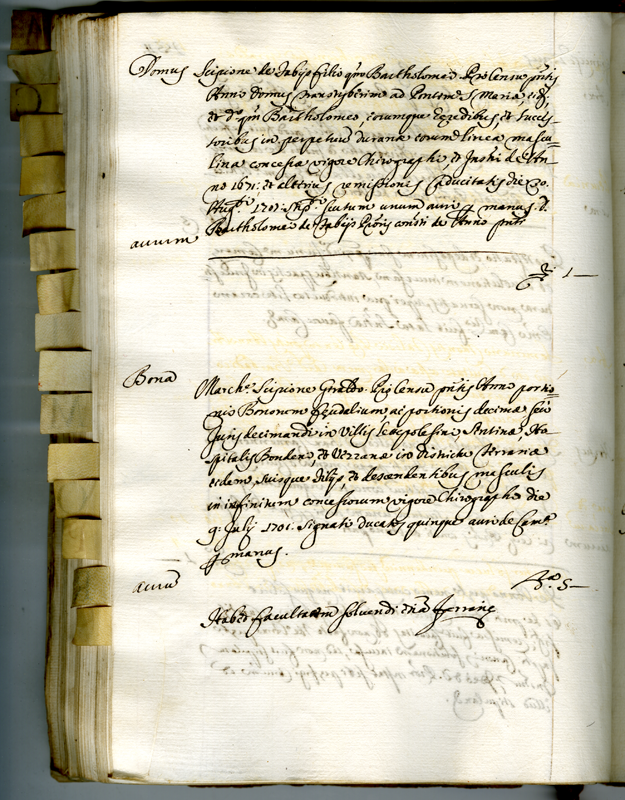 Domus Scipione de Fabijs filio qm Bartholomeo Pro Censu pntis
Anno Domus Transtyberim ad Pontem S. Mariæ, eidē,
et dº qm Bartholomeo, eorumque Heredibus et Succes-
soribus in perpetuū durañ eorum linea mascu-
lina concessa vigore Chirographi et Instri de An-
no 1671: et ulterius remissionis caducitatis die 20.
Aug. 1701: scutum unum auri manus D.
Bartholomei de Fabijs Prōis constī de Anno pnti
aurum
1—
Bona March. Scipione Pro Censu pntis Anno portio-
nis Bonorum feudalium ac portionis decimæ seu
Juris decimandi in Villis Scaepolesini, Stntinæ, Ho-
spitalis Bondeni, et Verranæ in districtu Ferrariæ
eidem, suisque filijs et descendentibus masculis
in infinitum concessorum vigore Chirographi die
9: Julij 1701. signati ducatos quinque auri de Camª
manus.
aurū
5—
Habet facultatem solvendi etiā Ferrariæ